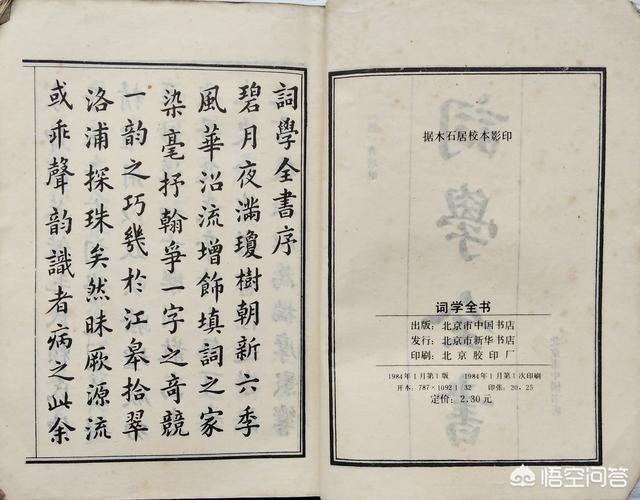 据木石居校本影印
词学全书
出版：北京市中国书店
发行：北京市新华书店
印刷：北京胶印厂
1984年1月第1版 1984年1月第1次印刷
开本：787×1092 1/32 印张：20.25
定价：2.30元
詞學全書序
碧月夜滿瓊樹朝新六季
風華沿流增飾填詞之家
染毫抒翰爭一字之奇競
一韵之巧幾於江皋拾翠
洛浦探珠矣然昧厥源流
或乖聲韵識者病之此余
悟空问答